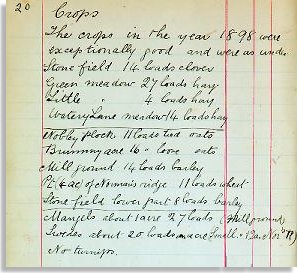 20
Crops
The crops in the year 1898 were
exceptionally good and were as under
Stone field 14 loads clover
Green meadow 27 loads hay
Little " 4 loads hay
Watery Lane meadow 14 loads hay
Nobby Plock 11 loads tied oats
acre 16 " loose oats
Mill ground 14 loads barley
Pt (4 ac) of ridge 11 loads wheat
Stone field lower part 8 loads barley
Mangels about 1 acre 27 loads (Mill ground)
Swedes about 20 loads
No turnips.